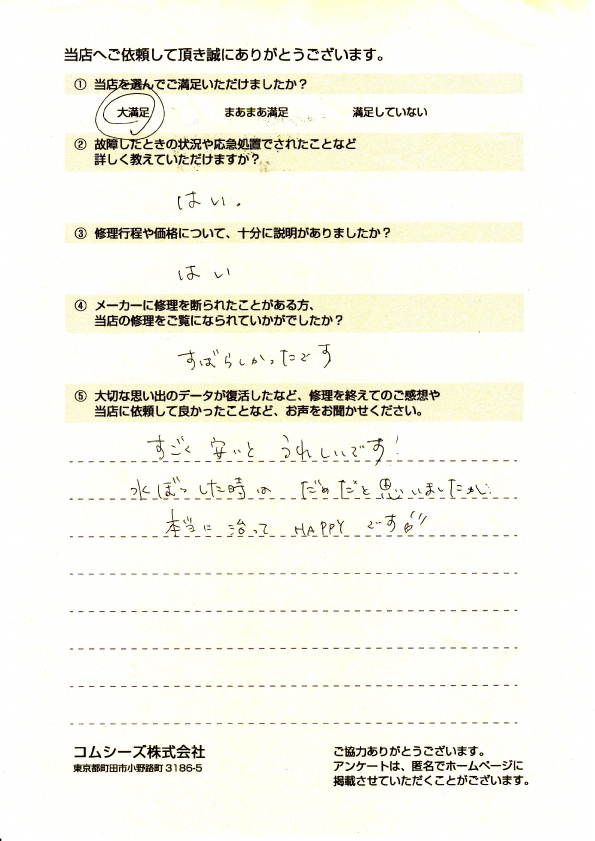 当店へご依頼して頂き誠にありがとうございます。
① 当店を選んでご満足いただけましたか？
大満足 まあまあ満足 満足していない
② 故障したときの状況や応急処置でされたことなど
詳しく教えていただけますか？
はい。
③ 修理行程や価格について、十分に説明がありましたか？
はい
④ メーカーに修理を断られたことがある方、
当店の修理をご覧になられていかがでしたか？
すばらしかったです
⑤ 大切な思い出のデータが復活したなど、修理を終えてのご感想や
当店に依頼して良かったことなど、お声をお聞かせください。
すごく安いとうれしいです!
水ぼつした時はだめだと思いましたが
本当に治ってHAPPYです
コムシーズ株式会社
東京都町田市小野路町3186-5
ご協力ありがとうございます。
アンケートは、匿名でホームページに
掲載させていただくことがございます。